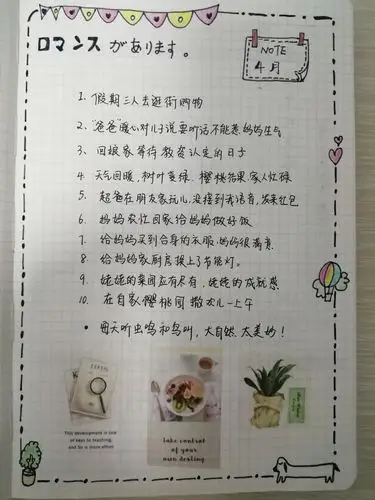 ロマンスがあります。
NOTE
4月
1. 假期三人去逛街购物
2. "爸爸"暖心对儿子说要听话不能惹妈妈生气
3. 回娘家等待教资认定的日子
4. 天气回暖,树叶变绿、樱桃结果、家人忙碌
5. 超爸在朋友家玩儿,没接到我语音,发来红包
6. 妈妈农忙回家给妈妈做好饭
7. 给妈妈买到合身的衣服,妈妈很满意
8. 给妈妈家厨房换上了节能灯。
9. 姥姥的菜园应有尽有,姥姥的成就感
10. 在自家樱桃园撒欢儿一上午
• 每天听虫鸣和鸟叫,大自然太美妙!
This development is one
of keys to teaching,
and so is more effort
take control
of your
own destiny